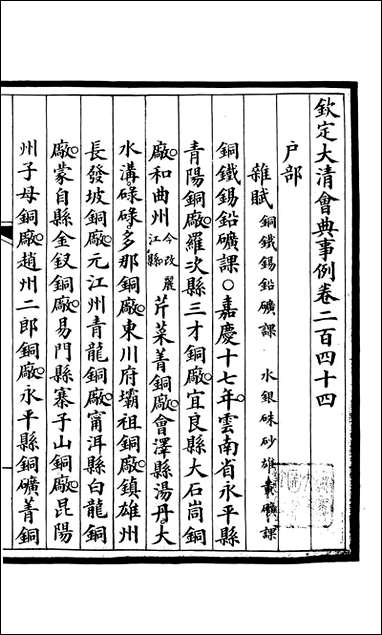 欽定大清會典事例卷二百四十四
戶部
雜賦 銅鐵錫鉛礦課 水銀硃砂雄黃礦課
銅鐵錫鉛礦課○嘉慶十七年雲南省永平縣
青陽銅廠羅次縣三才銅廠宜良縣大石崗銅
廠和曲州今改麗江縣芹菜菁銅廠會澤縣湯丹大
水溝碌碌多那銅廠東川府壩祖銅廠鎮雄州
長發坡銅廠元江州青龍銅廠甯洱縣白龍銅
廠蒙自縣金釵銅廠易門縣寨子山銅廠昆陽
州子母銅廠趙州二郎銅廠永平縣銅礦菁銅